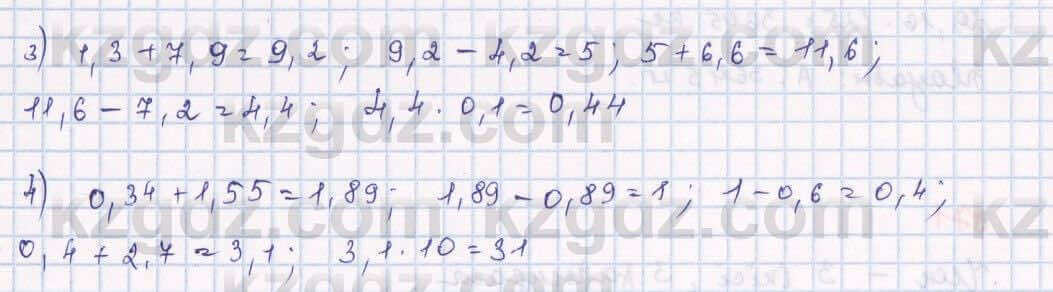 3) 1,3 + 7,9 = 9,2 ; 9,2 - 4,2 = 5 ; 5 + 6,6 = 11,6 ;
11,6 - 7,2 = 4,4 ; 4,4 · 0,1 = 0,44
4) 0,34 + 1,55 = 1,89 ; 1,89 - 0,89 = 1 ; 1 - 0,6 = 0,4 ;
0,4 + 2,7 = 3,1 ; 3,1 · 10 = 31
kzgdz.com